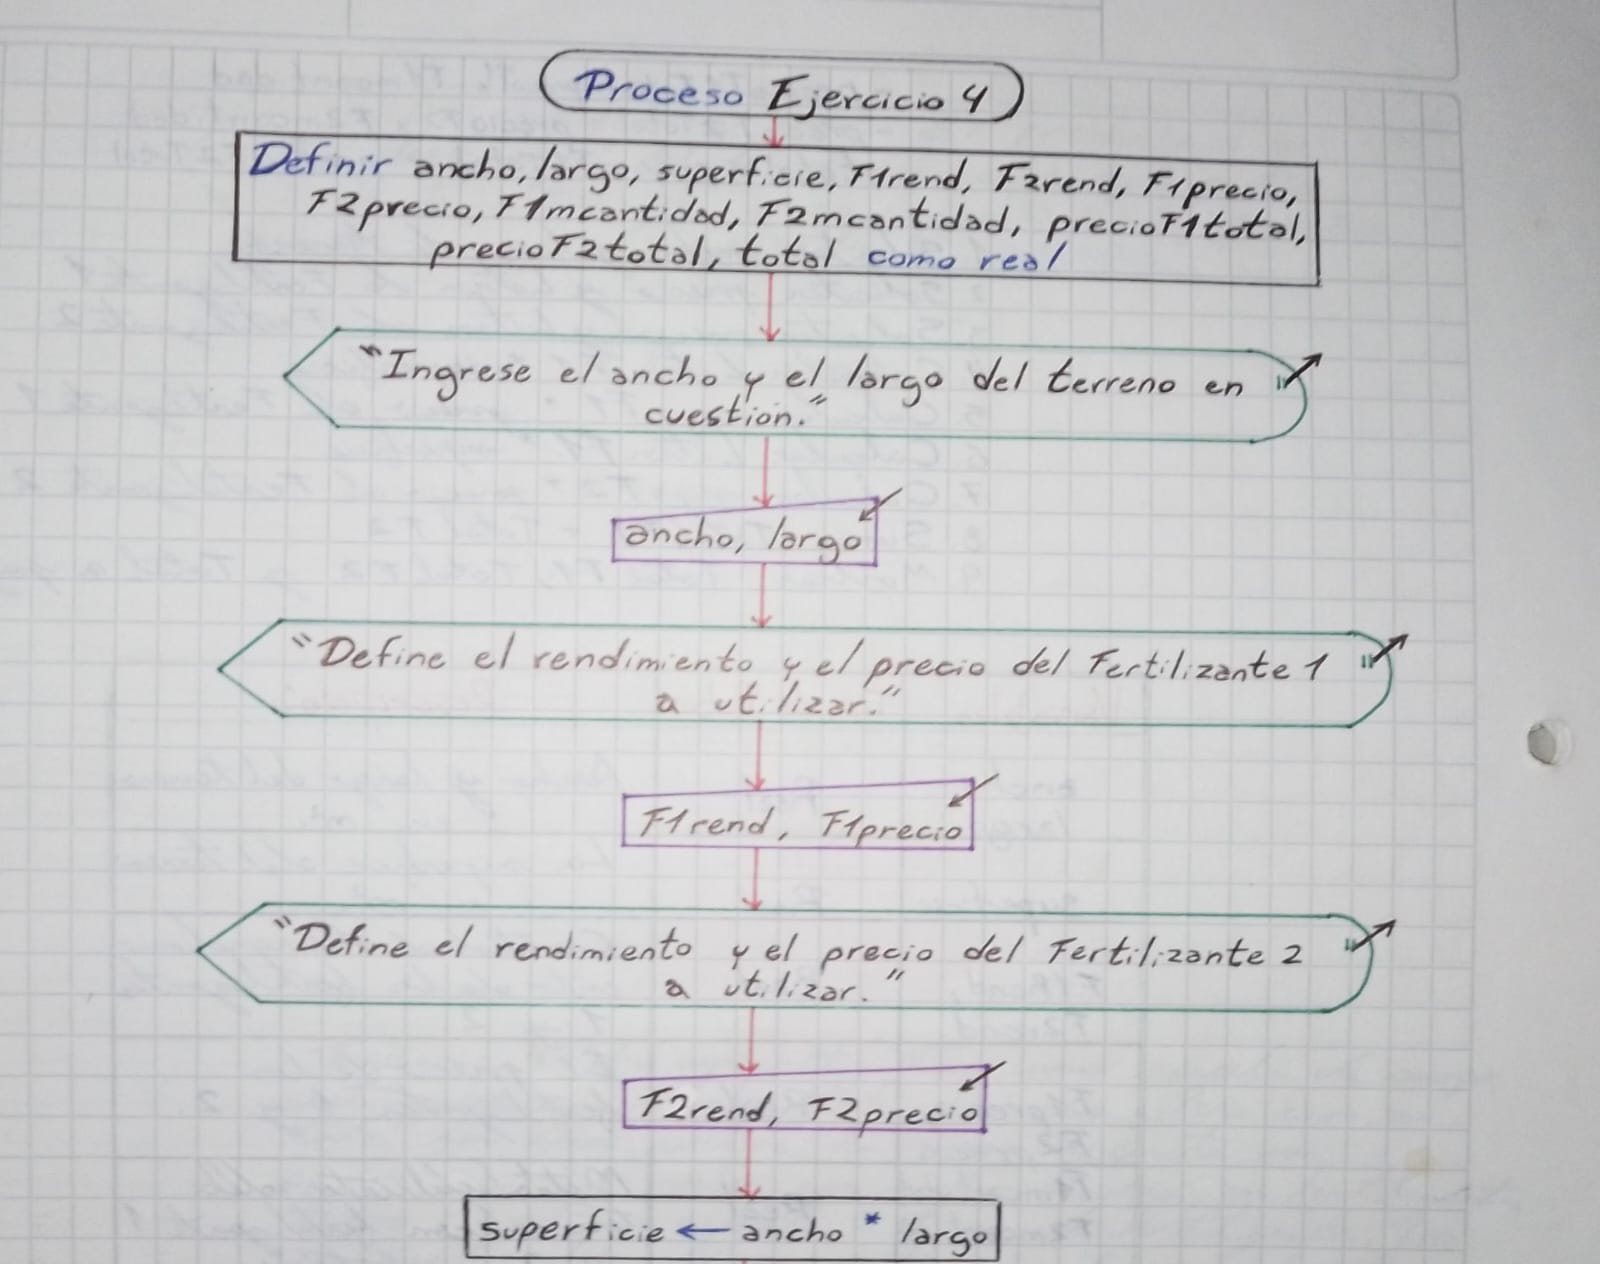 Proceso Ejercicio 4
Definir ancho, largo, superficie, F1rend, F2rend, F1precio,
F2precio, F1mcantidad, F2mcantidad, precioF1total,
precioF2total, total como real
"Ingrese el ancho y el largo del terreno en "
cuestión."
ancho, largo
"Define el rendimiento y el precio del Fertilizante 1 "
a utilizar."
F1rend, F1precio
"Define el rendimiento y el precio del Fertilizante 2 "
a utilizar."
F2rend, F2precio
superficie ← ancho * largo